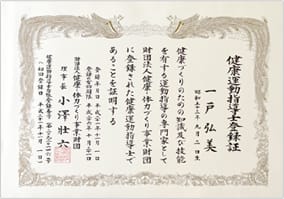 健康運動指導士登録証
一戸弘美
昭和五十三年九月二日生
健康づくりのための知識及び技能
を有する運動指導の専門家として
財団法人健康・体力づくり事業財団
に登録された健康運動指導士で
あることを証明する
登録年月日 平成二十一年十一月一日
財団法人健康・体力づくり事業財団
理事長 小澤壮六